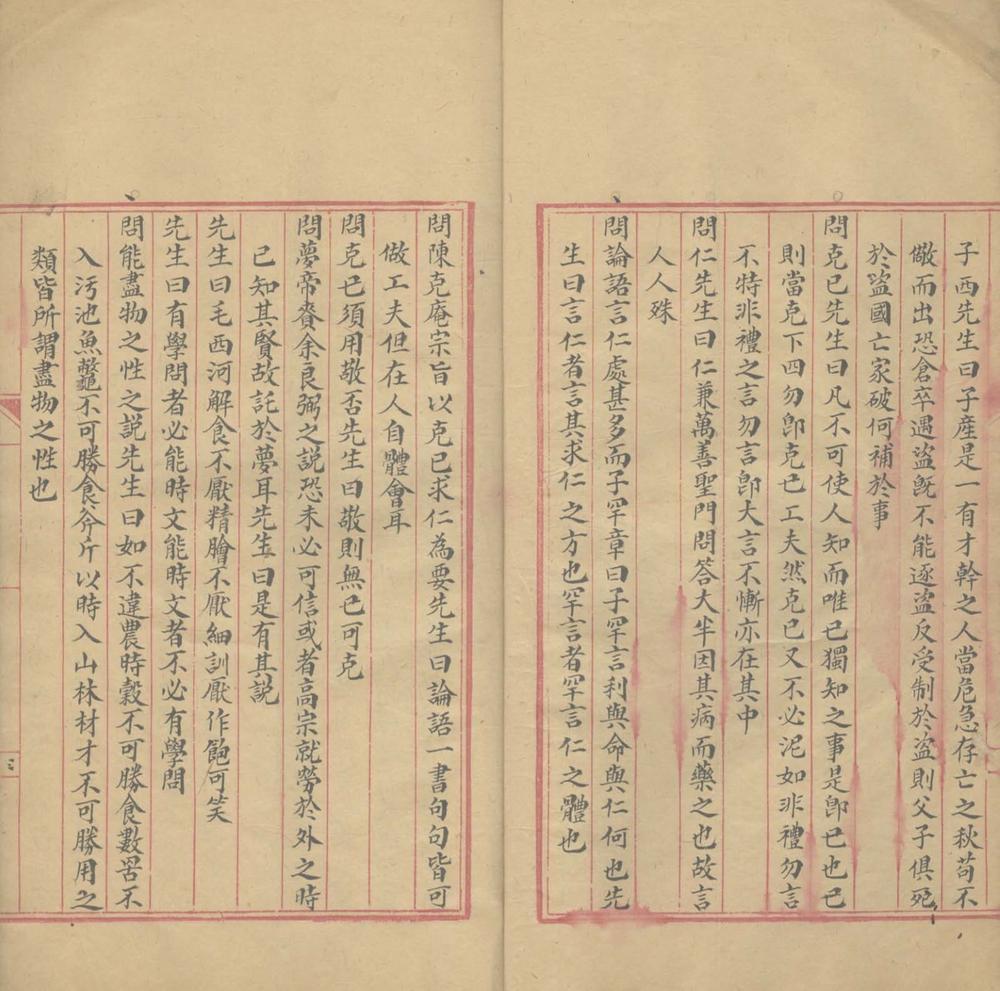 子西先生曰子產是一有才幹之人當危急存亡之秋苟不
儆而出恐倉卒遇盜旣不能逐盜反受制於盜則父子俱死
於盜國亡家破何補於事
問克已先生曰凡不可使人知而唯已獨知之事是卽已也已
則當克下四勿卽克已工夫然克已又不必泥如非禮勿言
不特非禮之言勿言卽大言不慚亦在其中
問仁先生曰仁兼萬善聖門問答大半因其病而藥之也故言
人人殊
問論語言仁處甚多而子罕章曰子罕言利與命與仁何也先
生曰言仁者言其求仁之方也罕言者罕言仁之體也
問陳克庵宗旨以克已求仁為要先生曰論語一書句句皆可
做工夫但在人自體會耳
問克已須用敬否先生曰敬則無已可克
問夢帝賚余良弼之說恐未必可信或者高宗就勞於外之時
已知其賢故託於夢耳先生曰是有其說
先生曰毛西河解食不厭精膾不厭細訓厭作飽可笑
先生曰有學問者必能時文能時文者不必有學問
問能盡物之性之說先生曰如不違農時穀不可勝食數罟不
入汚池魚鼈不可勝食斧斤以時入山林材才不可勝用之
類皆所謂盡物之性也